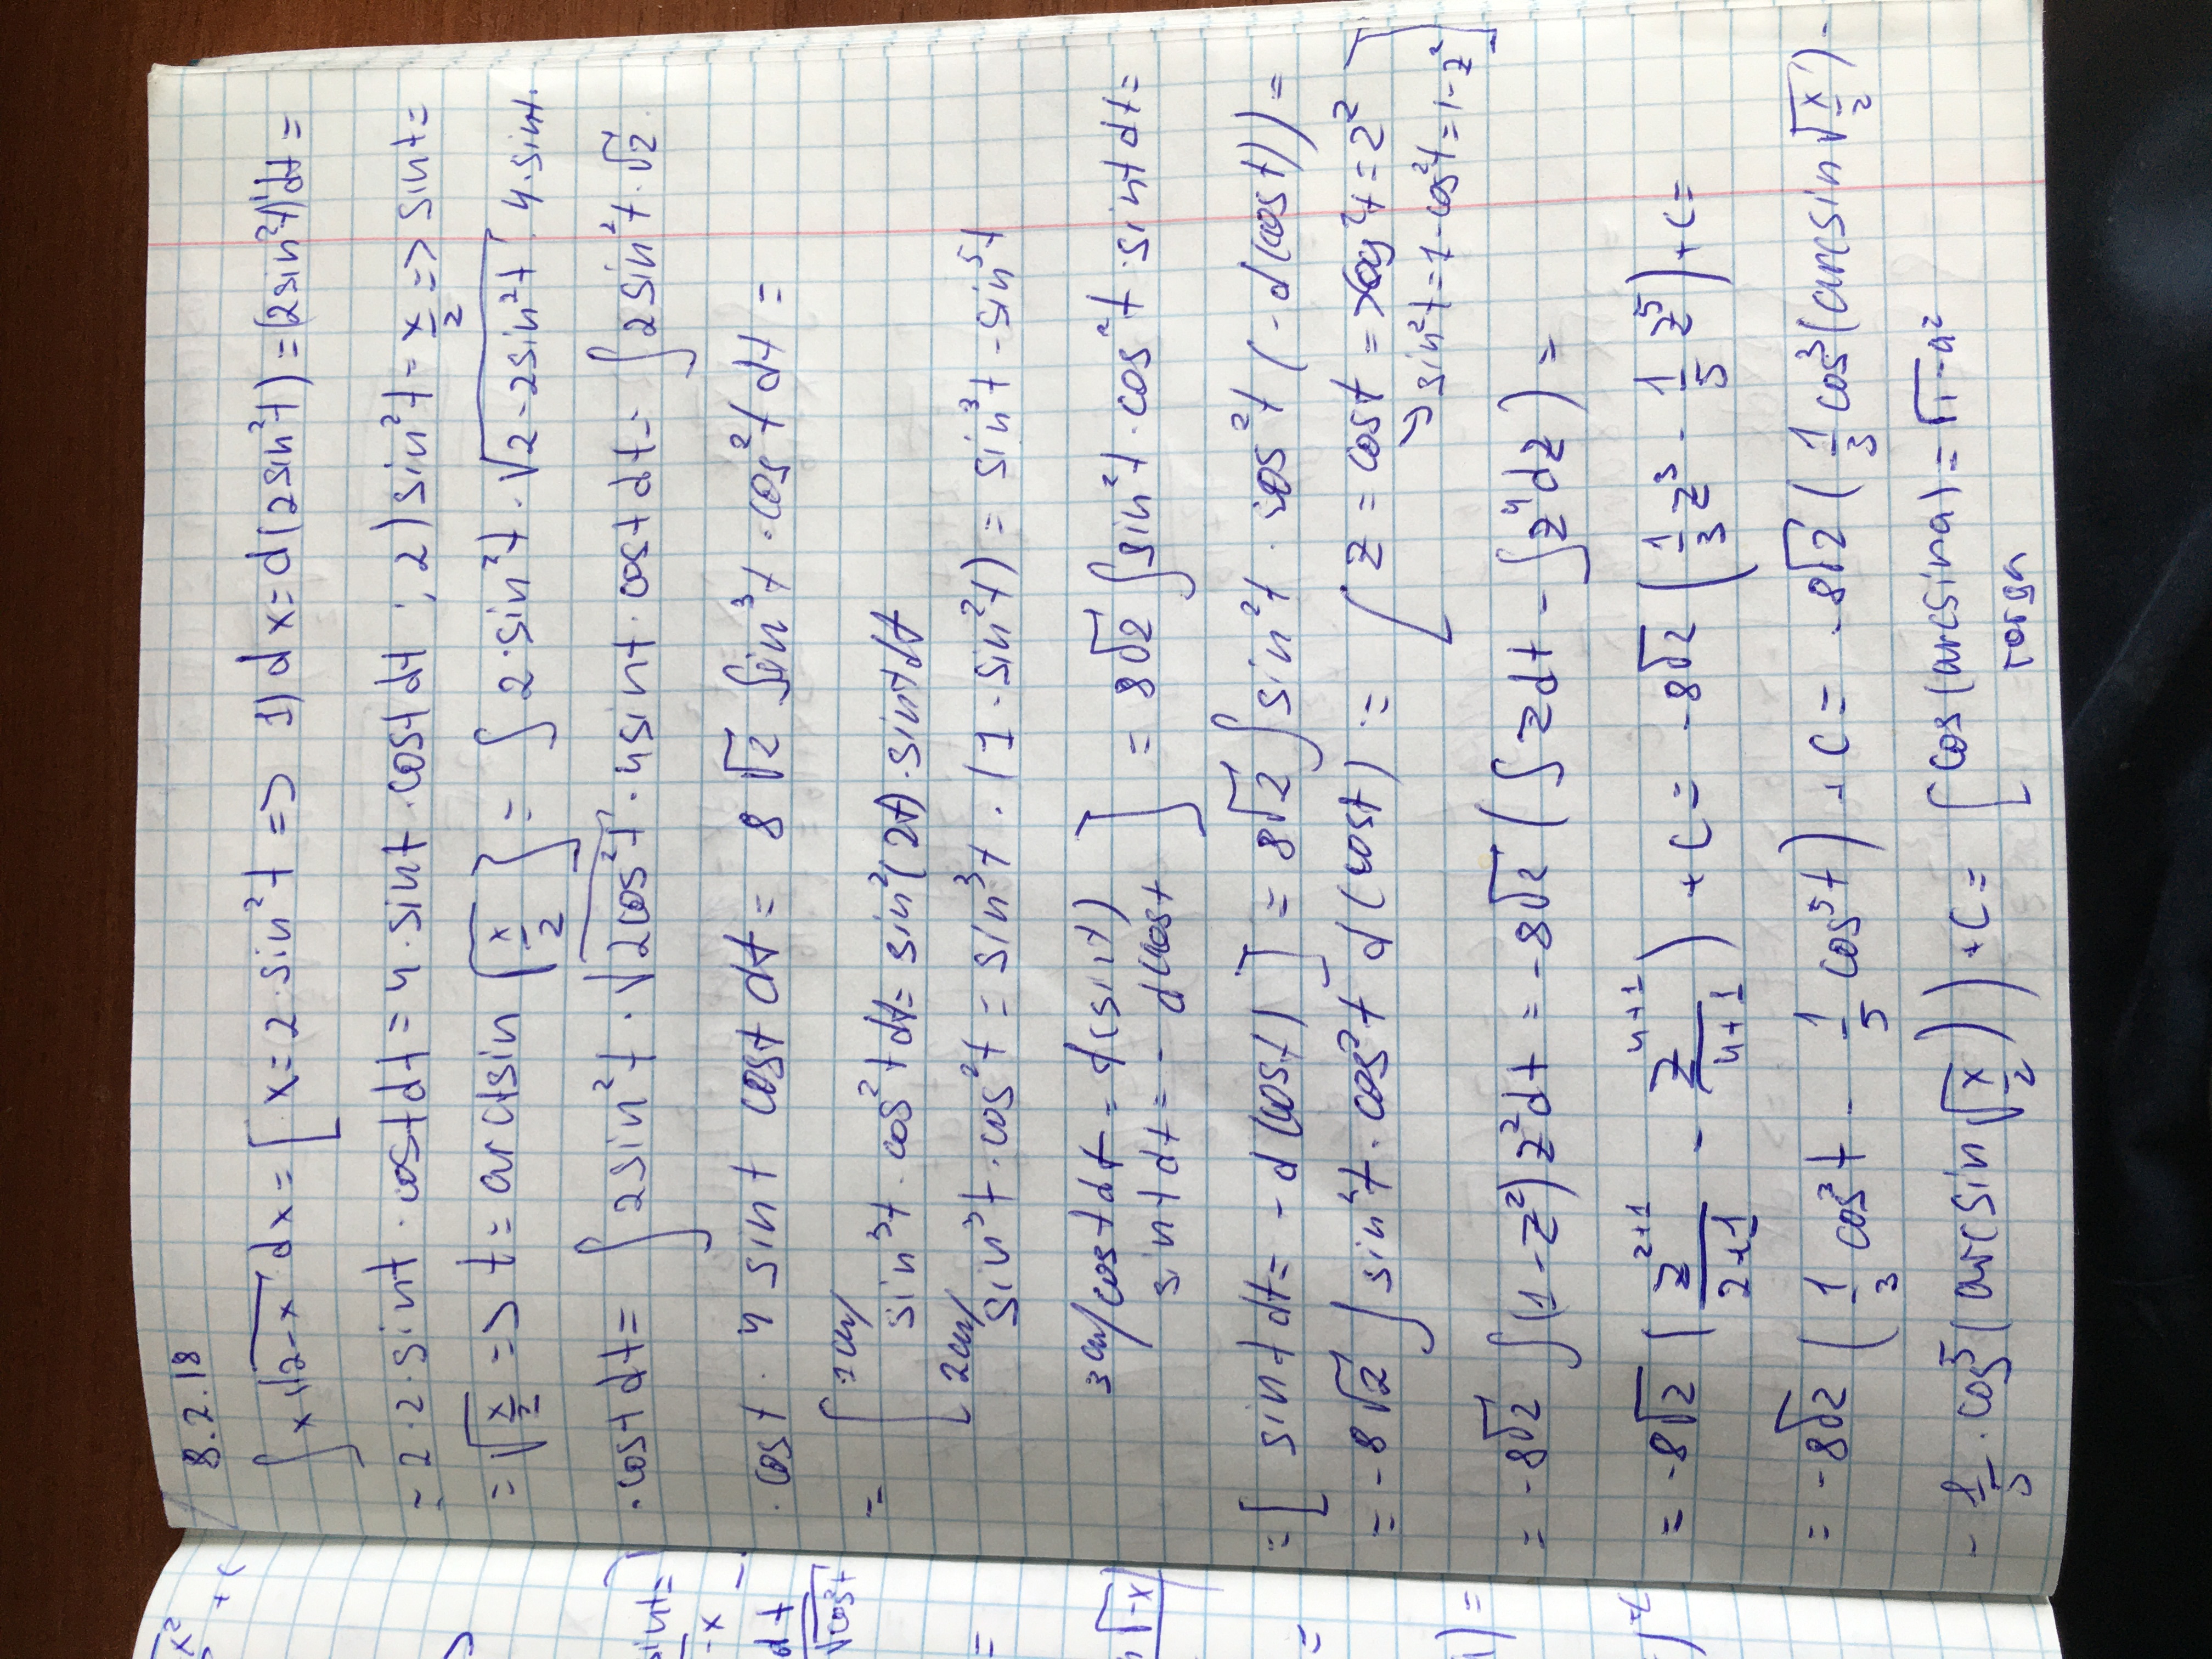 x²
+ c
8.2.18
∫ x√(2-x) dx = [ x = 2·sin²t => 1) dx = d(2sin²t) = (2sin²t)'dt =
= 2·2·sint·costdt = 4·sint·costdt ; 2) sin²t = x/2 => sint =
= √(x/2) => t = arcsin √(x/2) ] = ∫ 2·sin²t·√(2-2sin²t) 4·sint·
·costdt = ∫ 2sin²t·√(2cos²t)·4sint·costdt = ∫ 2sin²t·√2·
·cost·4 sint cost dt = 8√2 ∫sin³t·cos²t dt =
= [ 1сп/
sin³t·cos²tdt = sin²(2t)·sintdt
2сп/
sin³t·cos²t = sin³t·(1-sin²t) = sin³t - sin⁵t
3сп/ costdt = d(sint)
sintdt = - d(cost ] = 8√2 ∫sin²t·cos²t·sintdt =
= [ sintdt = -d(cost) ] = 8√2 ∫sin²t·cos²t (-d(cost)) =
= -8√2 ∫sin²t·cos²t d(cost) = [ z = cost => cos²t = z²
↘ sin²t = 1-cos²t = 1-z² ]
= -8√2 ∫(1-z²)z²dt = -8√2 (∫zdt - ∫z⁴dz) =
= -8√2 (z²⁺¹/(2+1) - z⁴⁺¹/(4+1)) + c = -8√2 (1/3 z³ - 1/5 z⁵) + c =
= -8√2 (1/3 cos³t - 1/5 cos⁵t) + c = -8√2 (1/3 cos³(arcsin √(x/2)) -
- 1/5·cos⁵(arcsin √(x/2))) + c = [ cos(arcsin a) = √(1-a²)
тогда
sint =
-x
dt
√(cos²t)
√(-x)